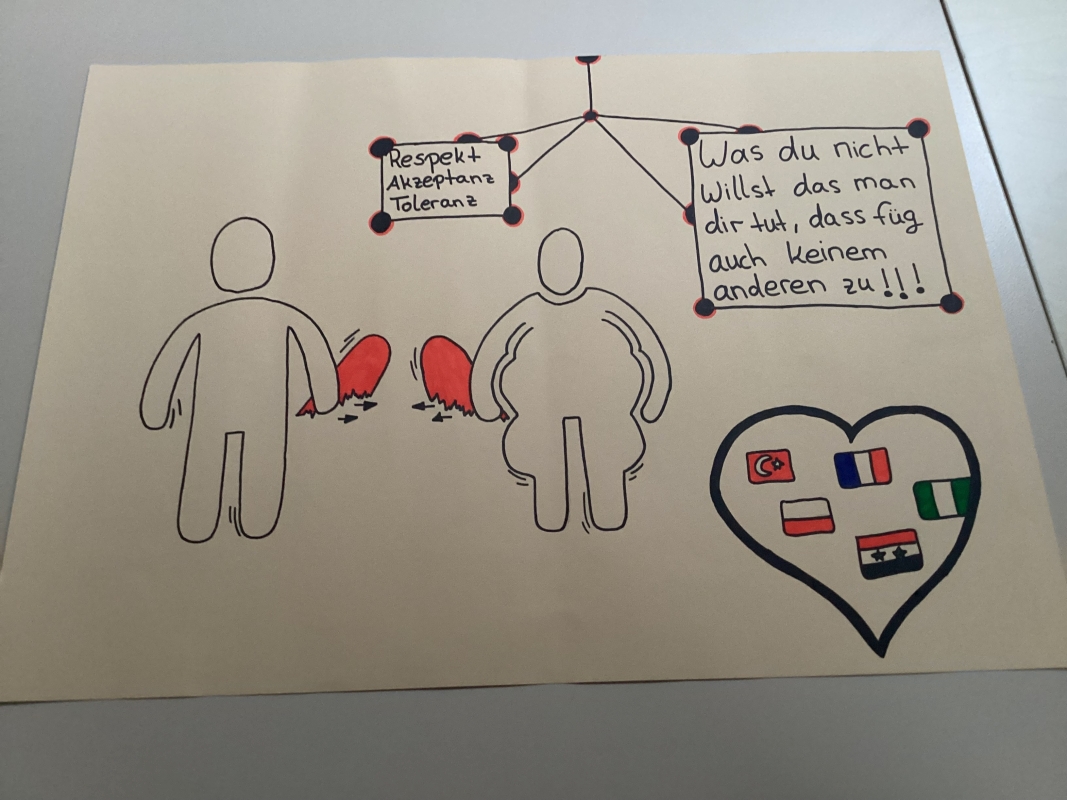 Respekt
Akzeptanz
Toleranz
Was du nicht
willst das man
dir tut, dass füg
auch keinem
anderen zu!!!